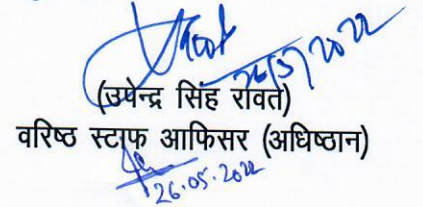 26/5/2022
(उपेन्द्र सिंह रावत)
वरिष्ठ स्टाफ आफिसर (अधिष्ठान)
26.05.2022